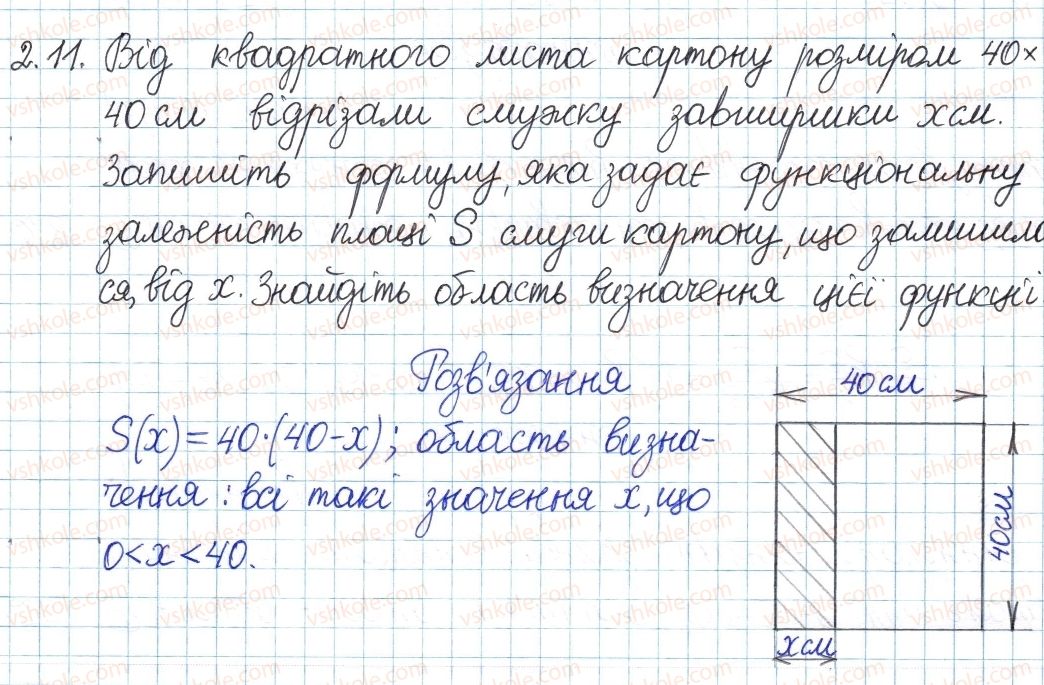 2.11. Від квадратного листа картону розміром 40×
40 см відрізали смужку завширшки x см.
Запишіть формулу, яка задає функціональну
залежність площі S смуги картону, що залишила
ся, від x. Знайдіть область визначення цієї функції
Розв'язання
S(x) = 40·(40-x); область визна-
чення: всі такі значення x, що
0 < x < 40.
40 см
40 см
x см